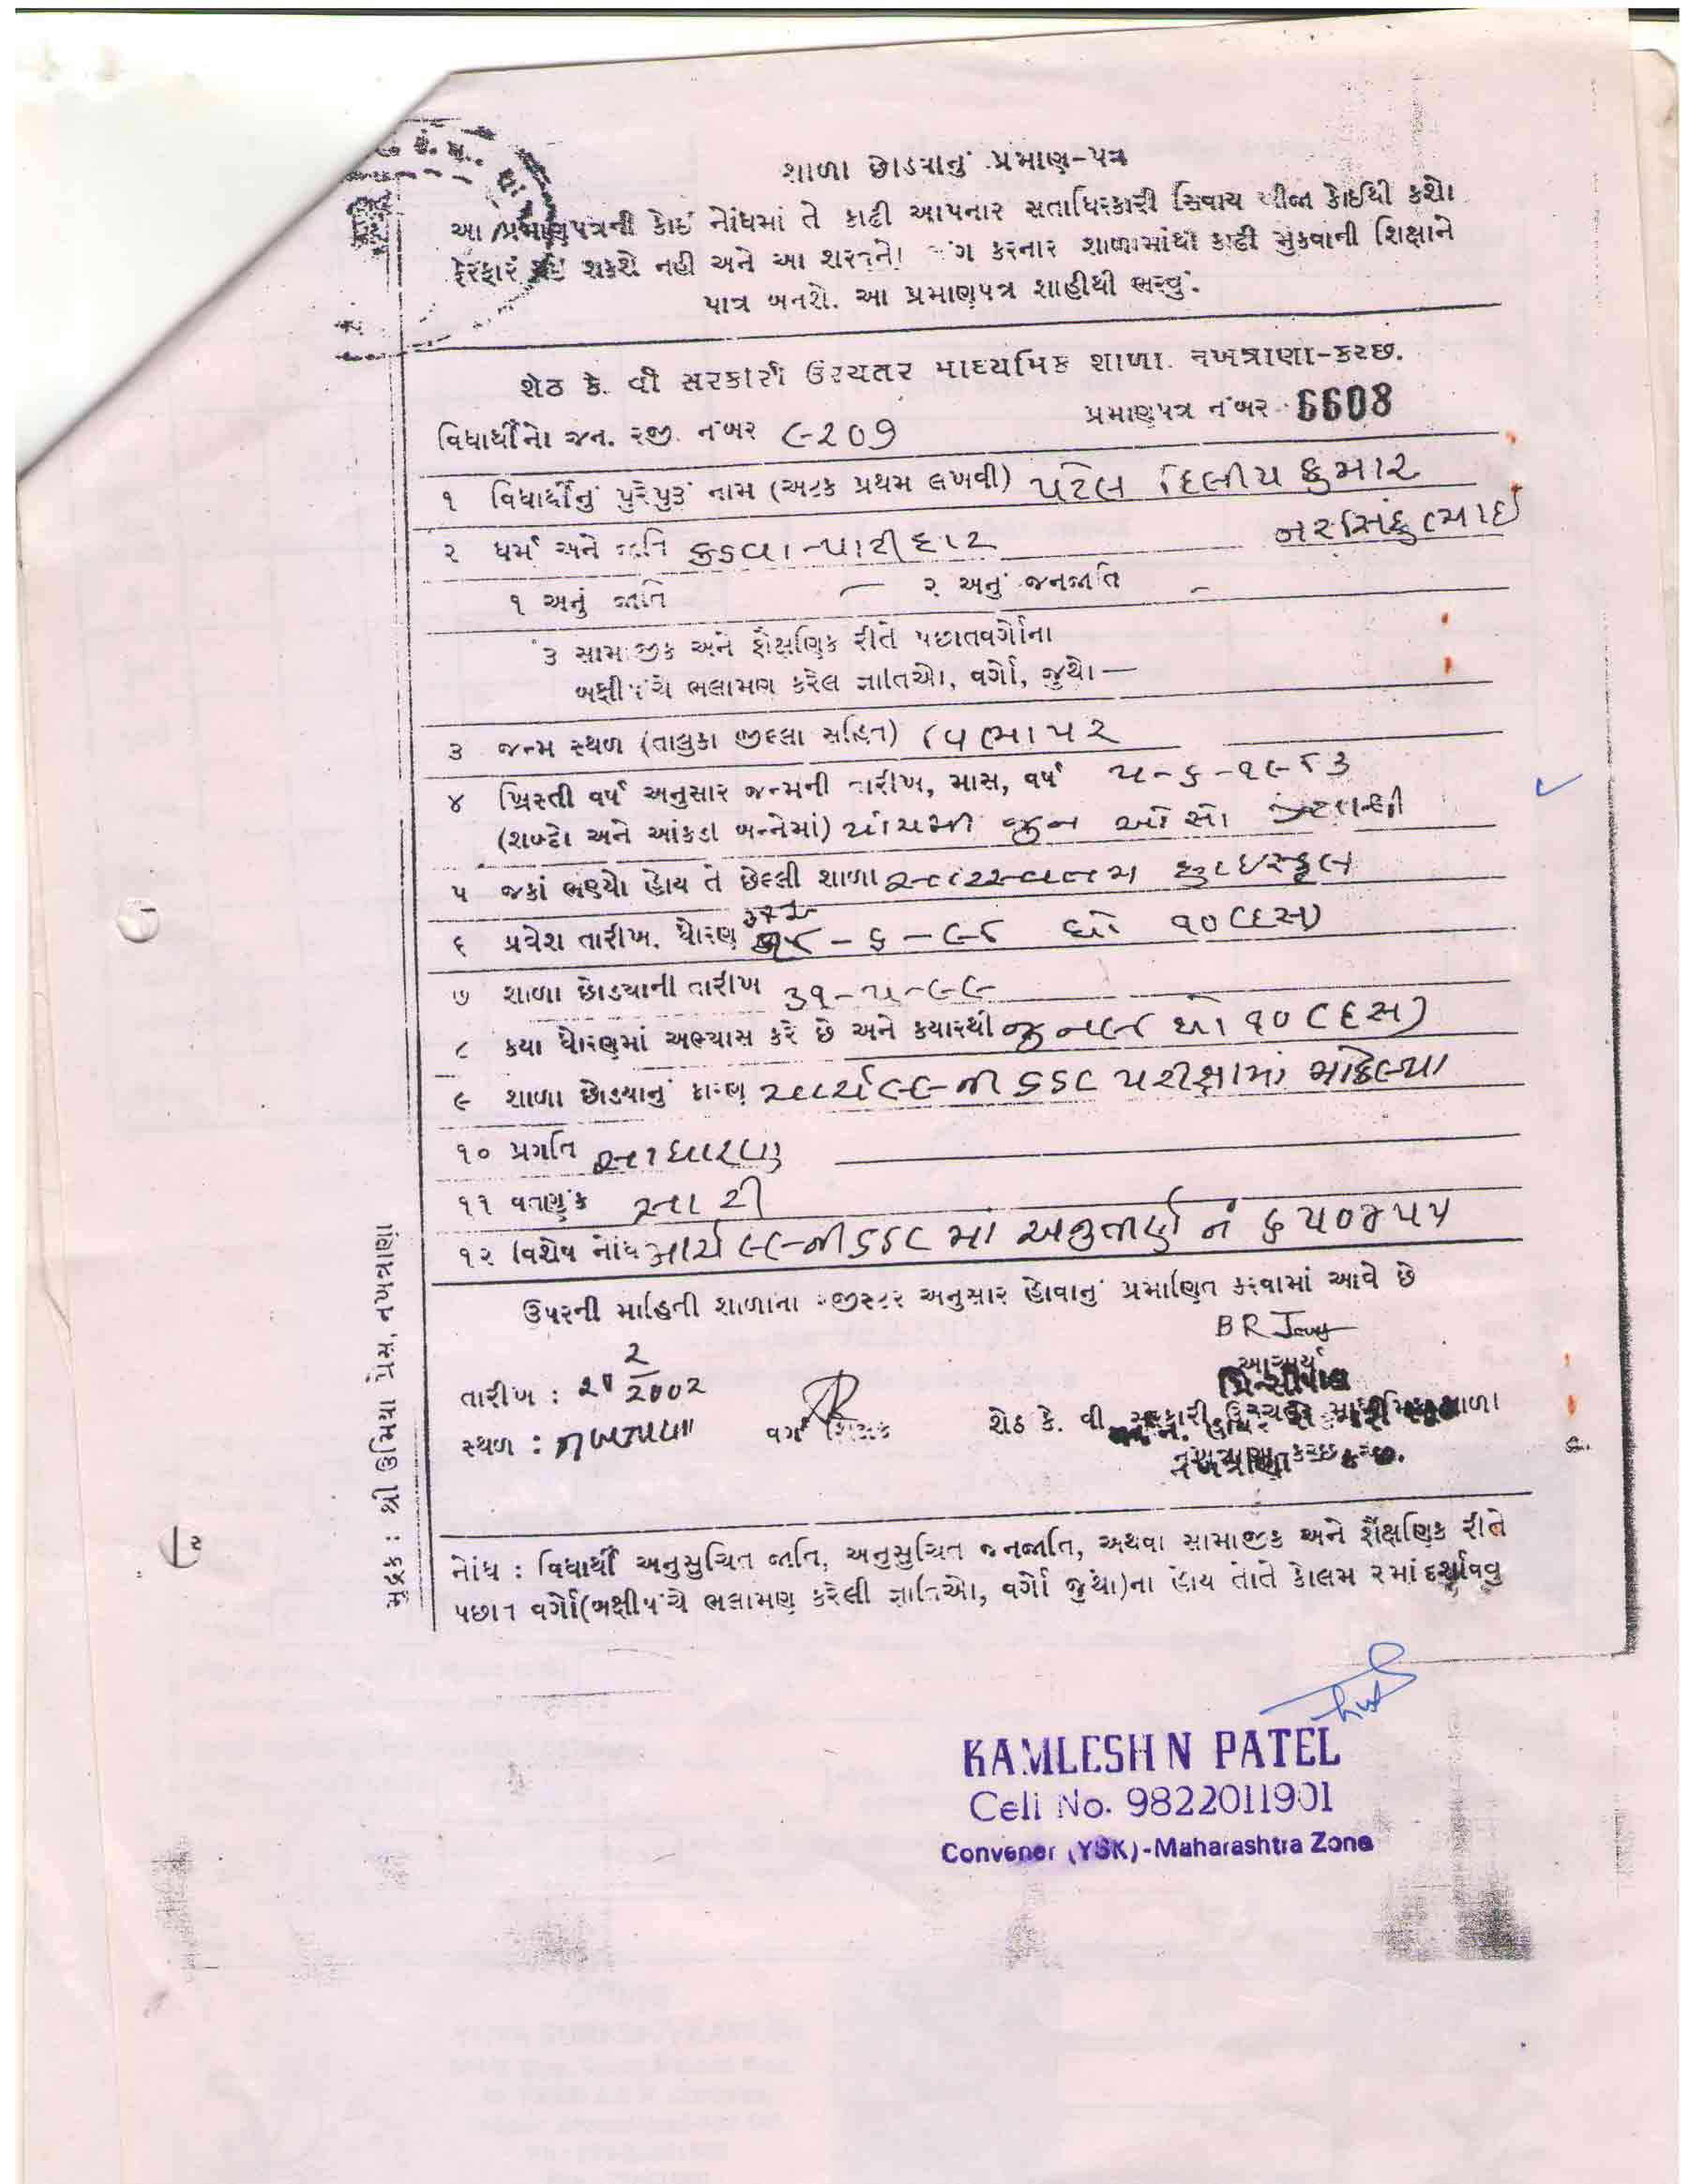 શાળા છોડયાનું પ્રમાણ-પત્ર
આ પ્રમાણપત્રની કોઈ નોંધમાં તે કાઢી આપનાર સતાધિકારી સિવાય બીજા કોઈથી કશો
ફેરફાર થઈ શકશે નહી અને આ શરતનો ભંગ કરનાર શાળામાંથી કાઢી મુકવાની શિક્ષાને
પાત્ર બનશે. આ પ્રમાણપત્ર શાહીથી ભરવું.
શેઠ કે. વી સરકારી ઉચ્ચતર માધ્યમિક શાળા. નખત્રાણા-કચ્છ.
પ્રમાણપત્ર નંબર 6608
વિધાર્થીનો જન. રજી. નંબર ૯૨૦૧
૧ વિધાર્થીનું પુરેપુરૂં નામ (અટક પ્રથમ લખવી) પટેલ દિલીપ કુમાર
નરસિંહભાઈ
૨ ધર્મ અને જાતિ કડવા-પાટીદાર
૧ અનું જાતિ — ૨ અનું જનજાતિ -
૩ સામાજીક અને શૈક્ષણિક રીતે પછાતવર્ગોના
બક્ષીપંચે ભલામણ કરેલ જ્ઞાતિઓ, વર્ગો, જુથો —
૩ જન્મ સ્થળ (તાલુકા જીલ્લા સહિત)
૪ ખ્રિસ્તી વર્ષ અનુસાર જન્મની તારીખ, માસ, વર્ષ ૫-૬-૧૯૮૩
(શબ્દો અને આંકડા બન્નેમાં) પાંચમી જુન ઓ સો
૫ જ્યાં ભણ્યો હોય તે છેલ્લી શાળા હાઈસ્કૂલ
૬ પ્રવેશ તારીખ, ધોરણ -૬-૯૮ ધો ૧૦ (દસ)
૭ શાળા છોડયાની તારીખ ૩૧-૫-૯૯
૮ કયા ધોરણમાં અભ્યાસ કરે છે અને કયારથી જુન ૯૮ ધો ૧૦ (દસ)
૯ શાળા છોડયાનું કારણ માર્ચ ૯૯-ની SSC પરીક્ષામાં મોકલ્યા
૧૦ પ્રગતિ સાધારણ
૧૧ વર્તણુંક સારી
૧૨ વિશેષ નોંધ માર્ચ ૯૯-ની SSC માં અનુતીર્ણ નં ૬૫૦૪૫૫
ઉપરની માહિતી શાળાના રજીસ્ટર અનુસાર હોવાનું પ્રમાણિત કરવામાં આવે છે
આચાર્ય
પ્રિન્સીપાલ
તારીખ : 21 2/2002
સ્થળ : નખત્રાણા
વર્ગ શિક્ષક
શેઠ કે. વી. સરકારી ઉચ્ચતર માધ્યમિક શાળા
નખત્રાણા કચ્છ.
નોંધ : વિધાર્થી અનુસુચિત જાતિ, અનુસુચિત જનજાતિ, અથવા સામાજીક અને શૈક્ષણિક રીતે
પછાત વર્ગો(બક્ષીપંચે ભલામણ કરેલી જ્ઞાતિઓ, વર્ગો જુથો)ના હોય તોતે કોલમ ૨માં દર્શાવવુ
મુદ્રક : શ્રી ઉમિયા પ્રેસ, નખત્રાણા
KAMLESH N PATEL
Cell No. 9822011901
Convener (YSK)-Maharashtra Zone